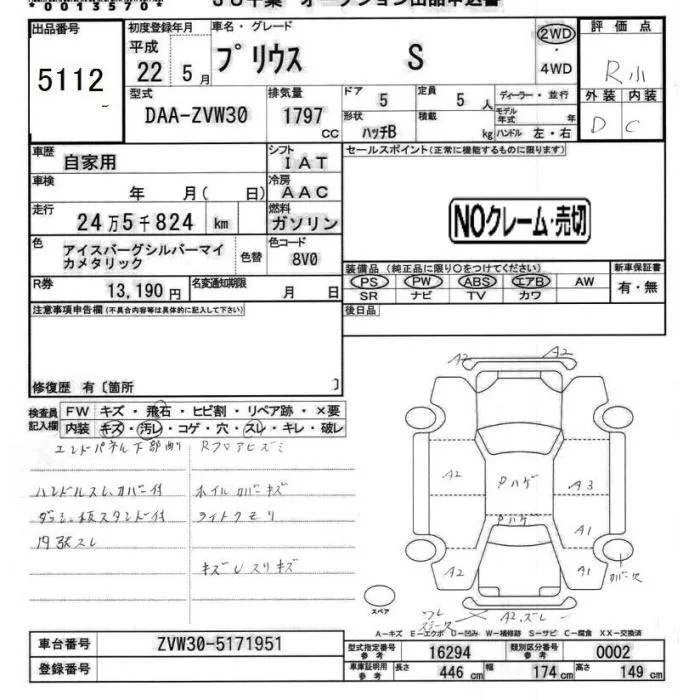 *0013570*
JU千葉 オークション出品申込書
出品番号
5112
初度登録年月
平成
22 5月
車名・グレード
プリウス S
2WD
4WD
評価点
R小
外装 内装
D C
型式
DAA-ZVW30
排気量
1797
CC
ドア 5
形状 ハッチB
定員 5 人
積載 kg
ディーラー・並行
モデル年式 年
ハンドル 左・右
車歴
自家用
シフト
IAT
セールスポイント(正常に機能するものに限ります)
車検 年 月( 日)
冷房
AAC
NOクレーム・売切
走行
24万5千824 km
燃料
ガソリン
色
アイスバーグシルバーマイカメタリック
色替
色コード
8V0
装備品(純正品に限り○をつけてください)
新車保証書
PS PW ABS エアB AW
SR ナビ TV カワ
有・無
R券
13,190円
名変通知期限
月 日
後日品
注意事項申告欄(不具合内容等は具体的に記入して下さい)
修復歴 有〔箇所 〕
検査員記入欄
FW キズ・飛石・ヒビ割・リペア跡・×要
内装 キズ・汚レ・コゲ・穴・スレ・キレ・破レ
エンドパネル下部曲り
Rフロアヒズミ
ハンドルスレ,カバー付
ホイルカバーキズ
ダッシュ板スタンド付
ライトクモリ
内張スレ
キズレスリキズ
A2 A2
A2 Pハゲ A3
Pハゲ
A1
A2 A1
カバー欠
ワレ
A2,ズレ
スペア
A-キズ E-エクボ U-凹み W-補修跡 S-サビ C-腐食 XX-交換済
車台番号
ZVW30-5171951
登録番号
型式指定番号
参考
16294
類別区分番号
参考
0002
車庫証明用
参考
長さ 446 cm
幅 174 cm
高さ 149 cm